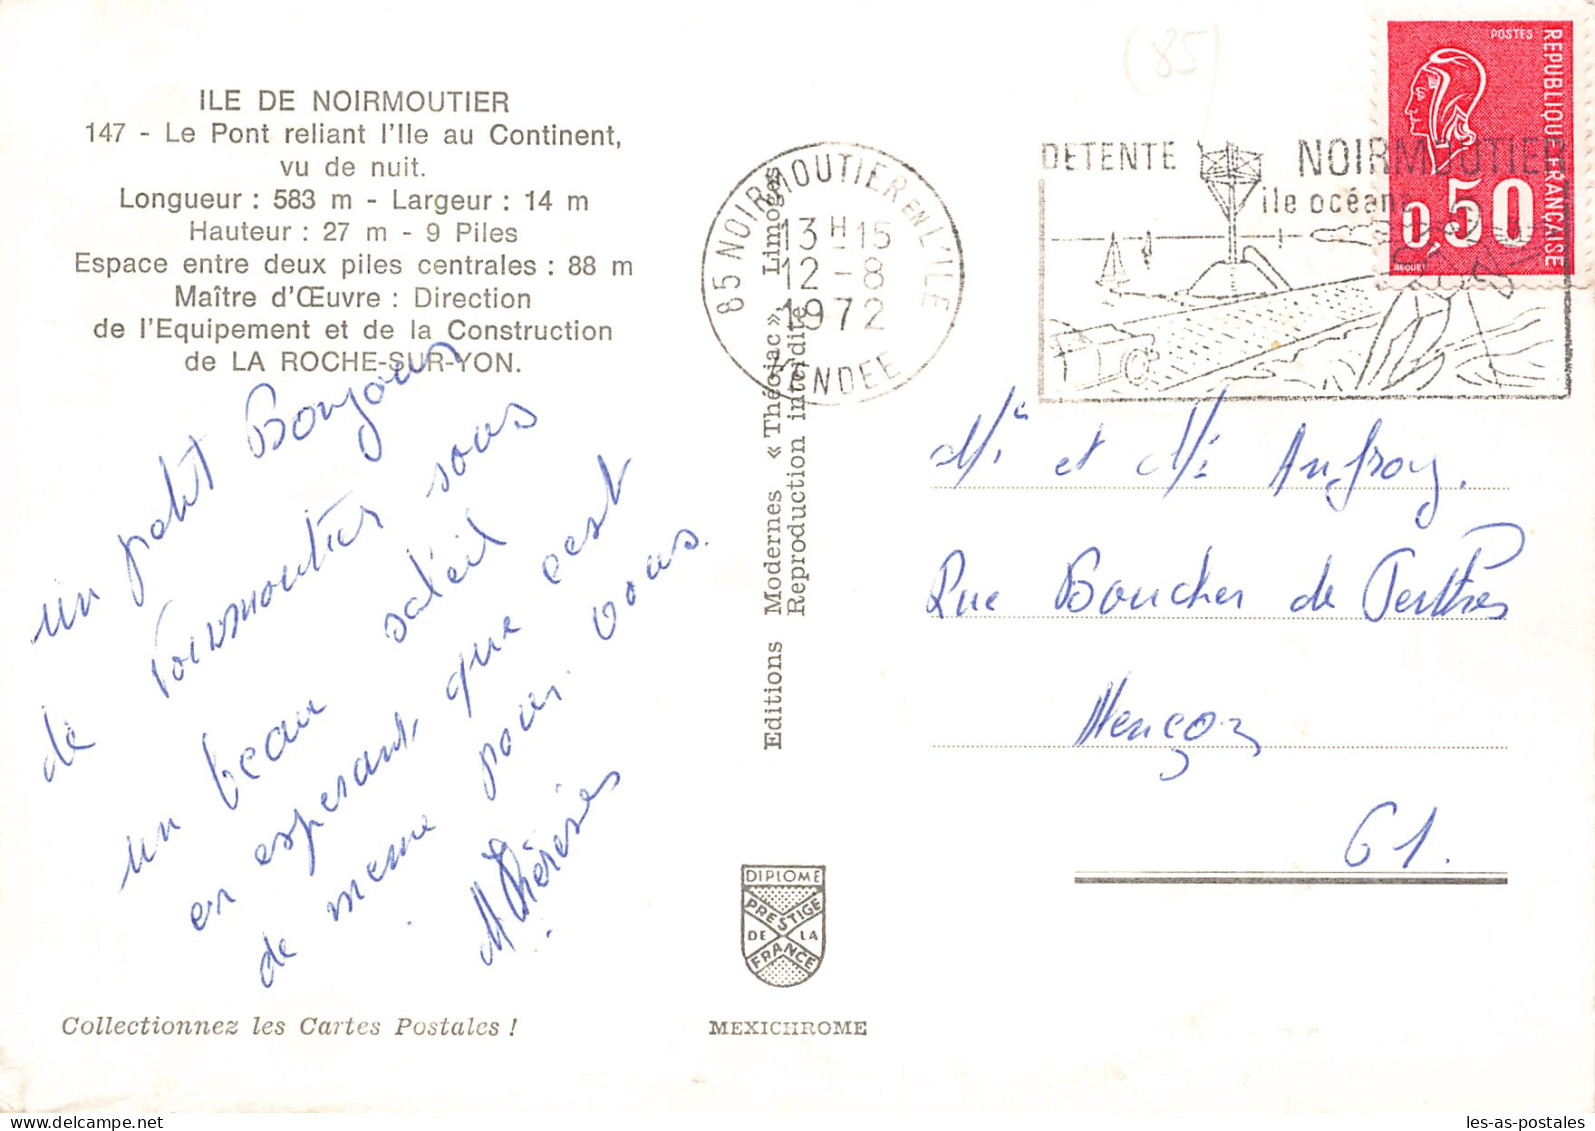 ILE DE NOIRMOUTIER
147 - Le Pont reliant l'Ile au Continent,
vu de nuit.
Longueur : 583 m - Largeur : 14 m
Hauteur : 27 m - 9 Piles
Espace entre deux piles centrales : 88 m
Maître d'Œuvre : Direction
de l'Equipement et de la Construction
de LA ROCHE-SUR-YON.
un petit Bonjour
de Noirmoutier sous
un beau soleil
en esperant, que cest
de meme pour vous.
M Thérèse
Collectionnez les Cartes Postales !
Editions Modernes « Théojac », Limoges
Reproduction interdite
DIPLOME
PRESTIGE
DE LA
FRANCE
MEXICHROME
(85)
85 NOIRMOUTIER EN L'ILE
13 H 15
12 - 8
1972
VENDEE
DETENTE NOIRMOUTIER
ile océane
POSTES
REPUBLIQUE FRANÇAISE
0,50
BEQUET
Mr et Me Aufroy.
Rue Boucher de Perthes
Alençon
61.
les-as-postales